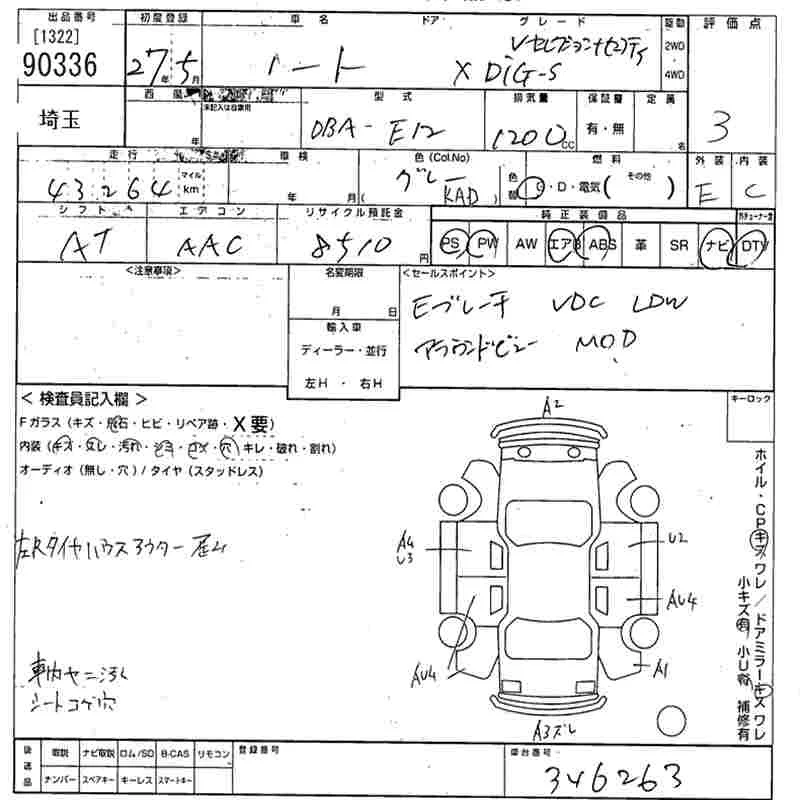 出品番号 初度登録 車名 ドア グレード 駆動 評価点
[1322]
90336
27年 5月
ノート
Vセレクション+セフティ
X DIG-S
2WD
4WD
埼玉
西暦
未記入は自家用
年
型式 排気量 保証書 定員
DBA-E12
1200cc
有・無
名
3
走行 車検 色(Col.No) 燃料 外装 内装
43264
マイル
km
年 月
グレー
(KAD)
色替
G・D・電気( その他 )
E C
シフト エアコン リサイクル預託金 純正装備品
AT AAC 8510円
PS PW AW エアB ABS 革 SR ナビ DTV
<注意事項>
名変期限
月 日
輸入車
ディーラー・並行
左H・右H
<セールスポイント>
Eブレーキ VDC LDW
アラウンドビュー MOD
<検査員記入欄>
キーロック
Fガラス(キズ・飛石・ヒビ・リペア跡・X要)
内装(キズ・ヨレ・汚れ・コゲ・穴・キレ・破れ・割れ)
オーディオ(無し・穴)/タイヤ(スタッドレス)
左Rタイヤハウスアウター歪ム
車内ヤニ汚レ
シートコゲ穴
A2
A4
U3
U2
AU4
AU4
A1
A3ズレ
ホイル・CPキズワレ/ドアミラーキズワレ
小キズ有 小U有 補修有
後送品
取説 ナビ取説 ロム/SD B-CAS リモコン
ナンバー スペアキー キーレス スマートキー
登録番号
車台番号
346263